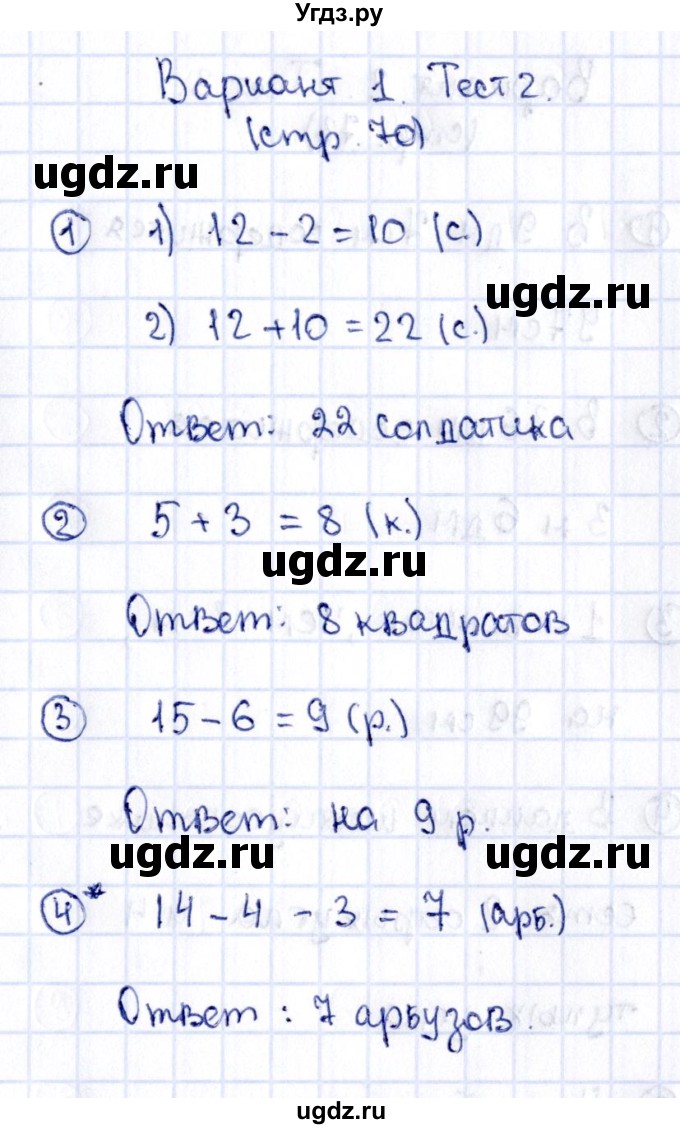 Угдз.ру
Вариант 1. Тест 2.
(стр. 70)
ugdz.ru
1 1) 12 - 2 = 10 (с.)
ugdz.ru
2) 12 + 10 = 22 (с.)
Ответ: 22 солдатика
2 5 + 3 = 8 (к.)
ugdz.ru
Ответ: 8 квадратов
3 15 - 6 = 9 (р.)
Ответ: на 9 р.
ugdz.ru ugdz.ru
4* 14 - 4 - 3 = 7 (арб.)
Ответ: 7 арбузов.
ugdz.ru